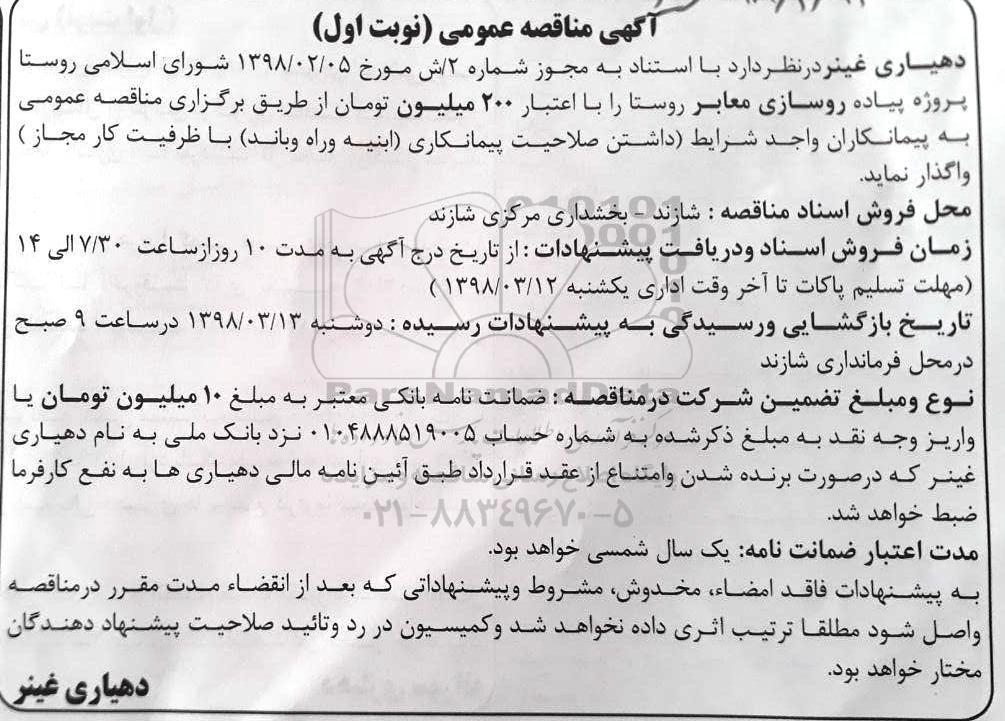 آگهی مناقصه عمومی (نوبت اول)
دهیاری غینر درنظردارد با استناد به مجوز شماره ۲/ش مورخ ۱۳۹۸/۰۲/۰۵ شورای اسلامی روستا
پروژه پیاده روسازی معابر روستا را با اعتبار ۲۰۰ میلیون تومان از طریق برگزاری مناقصه عمومی
به پیمانکاران واجد شرایط (داشتن صلاحیت پیمانکاری (ابنیه وراه وباند) با ظرفیت کار مجاز )
واگذار نماید.
محل فروش اسناد مناقصه : شازند - بخشداری مرکزی شازند
زمان فروش اسناد ودریافت پیشنهادات : از تاریخ درج آگهی به مدت ۱۰ روزازساعت ۷/۳۰ الی ۱۴
(مهلت تسلیم پاکات تا آخر وقت اداری یکشنبه ۱۳۹۸/۰۳/۱۲ )
تاریخ بازگشایی ورسیدگی به پیشنهادات رسیده : دوشنبه ۱۳۹۸/۰۳/۱۳ درساعت ۹ صبح
درمحل فرمانداری شازند
ParsNamadData
نوع ومبلغ تضمین شرکت درمناقصه : ضمانت نامه بانکی معتبر به مبلغ ۱۰ میلیون تومان یا
واریز وجه نقد به مبلغ ذکرشده به شماره حساب ۰۱۰۴۸۸۸۵۱۹۰۰۵ نزد بانک ملی به نام دهیاری
غینر که درصورت برنده شدن وامتناع از عقد قرارداد طبق آئین نامه مالی دهیاری ها به نفع کارفرما
ضبط خواهد شد.
۰۲۱-۸۸۳۴۹۶۷۰-۵
مدت اعتبار ضمانت نامه: یک سال شمسی خواهد بود.
به پیشنهادات فاقد امضاء، مخدوش، مشروط وپیشنهاداتی که بعد از انقضاء مدت مقرر درمناقصه
واصل شود مطلقا ترتیب اثری داده نخواهد شد وکمیسیون در رد وتائید صلاحیت پیشنهاد دهندگان
مختار خواهد بود.
دهیاری غینر